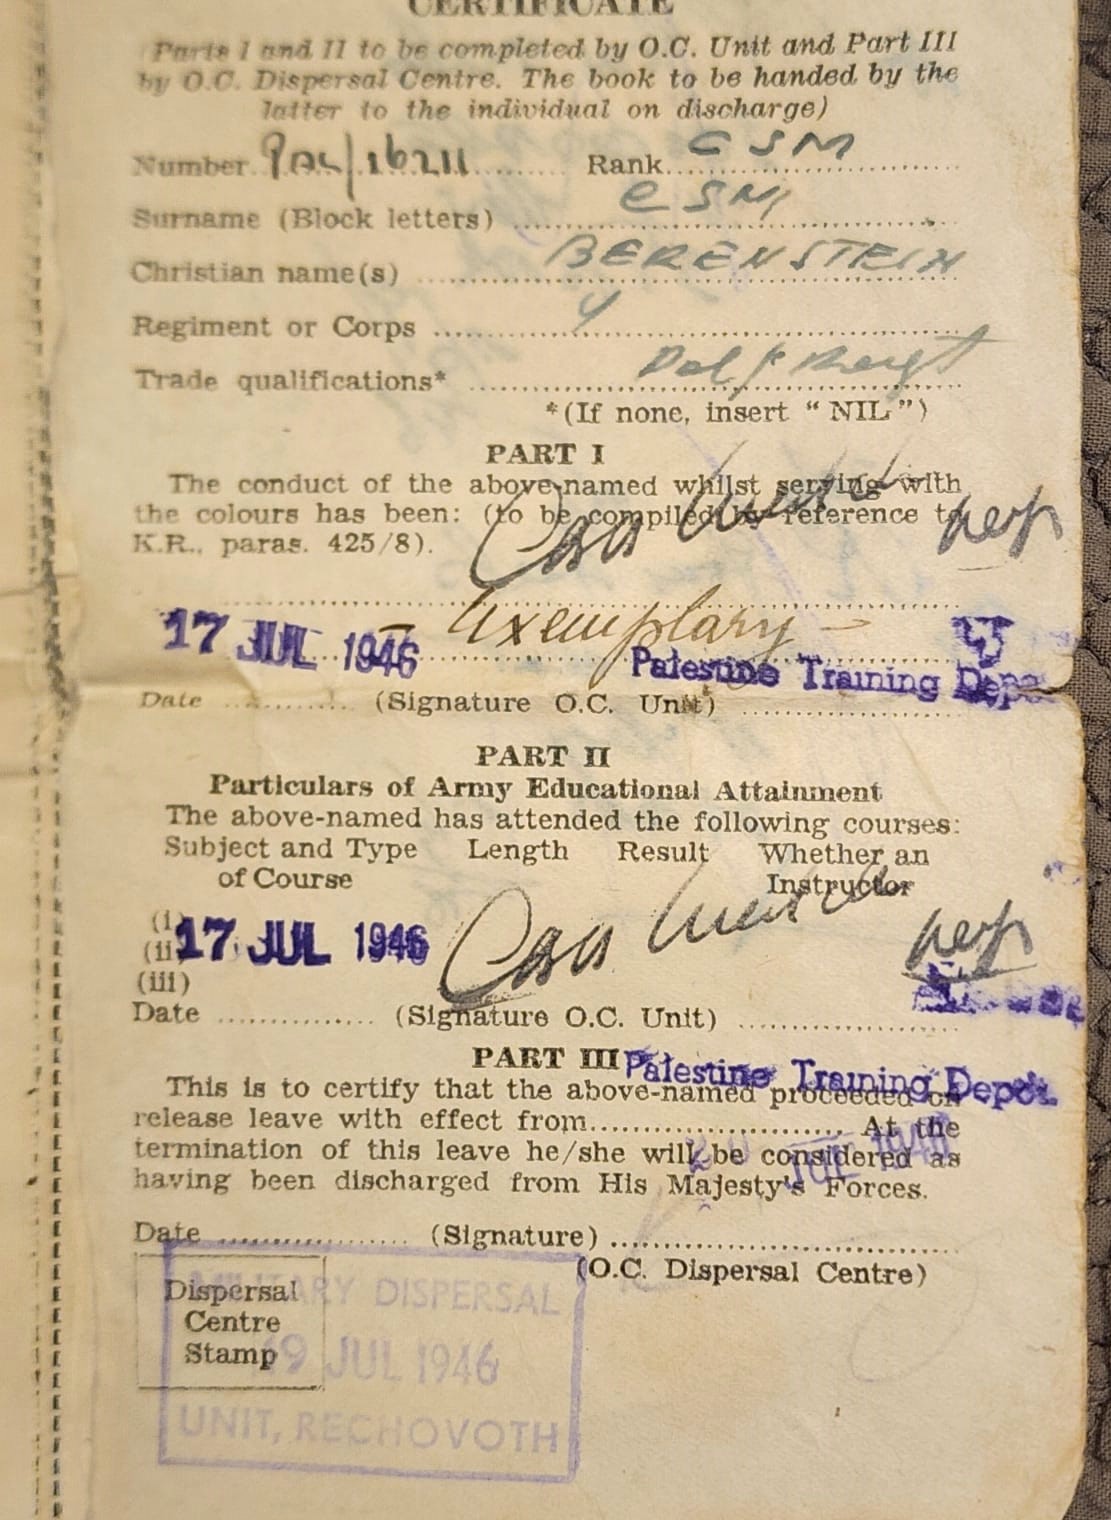 CERTIFICATE
(Parts I and II to be completed by O.C. Unit and Part III
by O.C. Dispersal Centre. The book to be handed by the
latter to the individual on discharge)
Number PAL/16211 Rank CSM
Surname (Block letters) CSM
Christian name(s) BERENSTEIN
Regiment or Corps Y
Trade qualifications* Pal
*(If none, insert "NIL")
PART I
The conduct of the above-named whilst serving with
the colours has been: (to be compiled by reference to
K.R., paras. 425/8).
Exemplary
17 JUL 1946 Palestine Training Depot
Date (Signature O.C. Unit)
PART II
Particulars of Army Educational Attainment
The above-named has attended the following courses:
Subject and Type Length Result Whether an
of Course Instructor
(i)
(ii) 17 JUL 1946
(iii)
Date (Signature O.C. Unit)
PART III Palestine Training Depot.
This is to certify that the above-named proceeded on
release leave with effect from At the
termination of this leave he/she will be considered as
having been discharged from His Majesty's Forces.
Date (Signature)
(O.C. Dispersal Centre)
Dispersal
Centre
Stamp
MILITARY DISPERSAL
19 JUL 1946
UNIT, RECHOVOTH